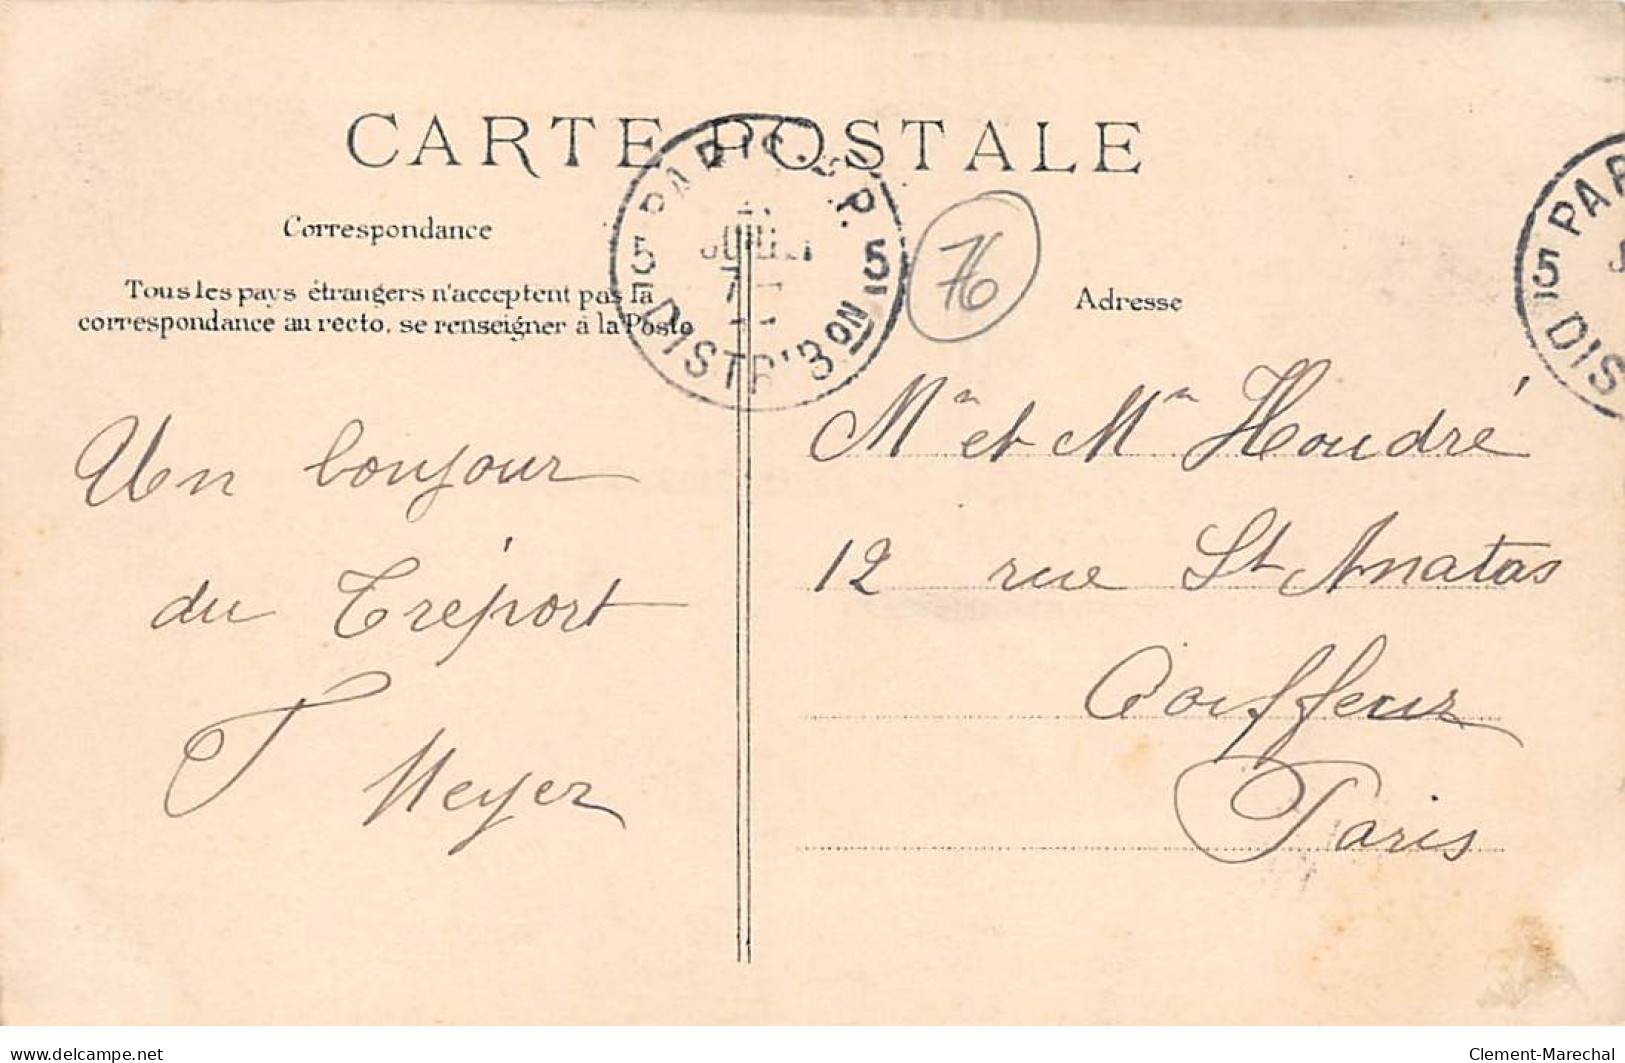 CARTE POSTALE
Correspondance
Tous les pays étrangers n'acceptent pas la
correspondance au recto, se renseigner à la Poste
Adresse
PARIS. P.P. 5
JUIL
7
5 DISTRIB ON
76
5 PAR
DIS
Un bonjour
du Tréport
J Meyer
Mr et Mm Houdré
12 rue St Anatas
Coiffeur
Paris
www.delcampe.net
Clement-Marechal